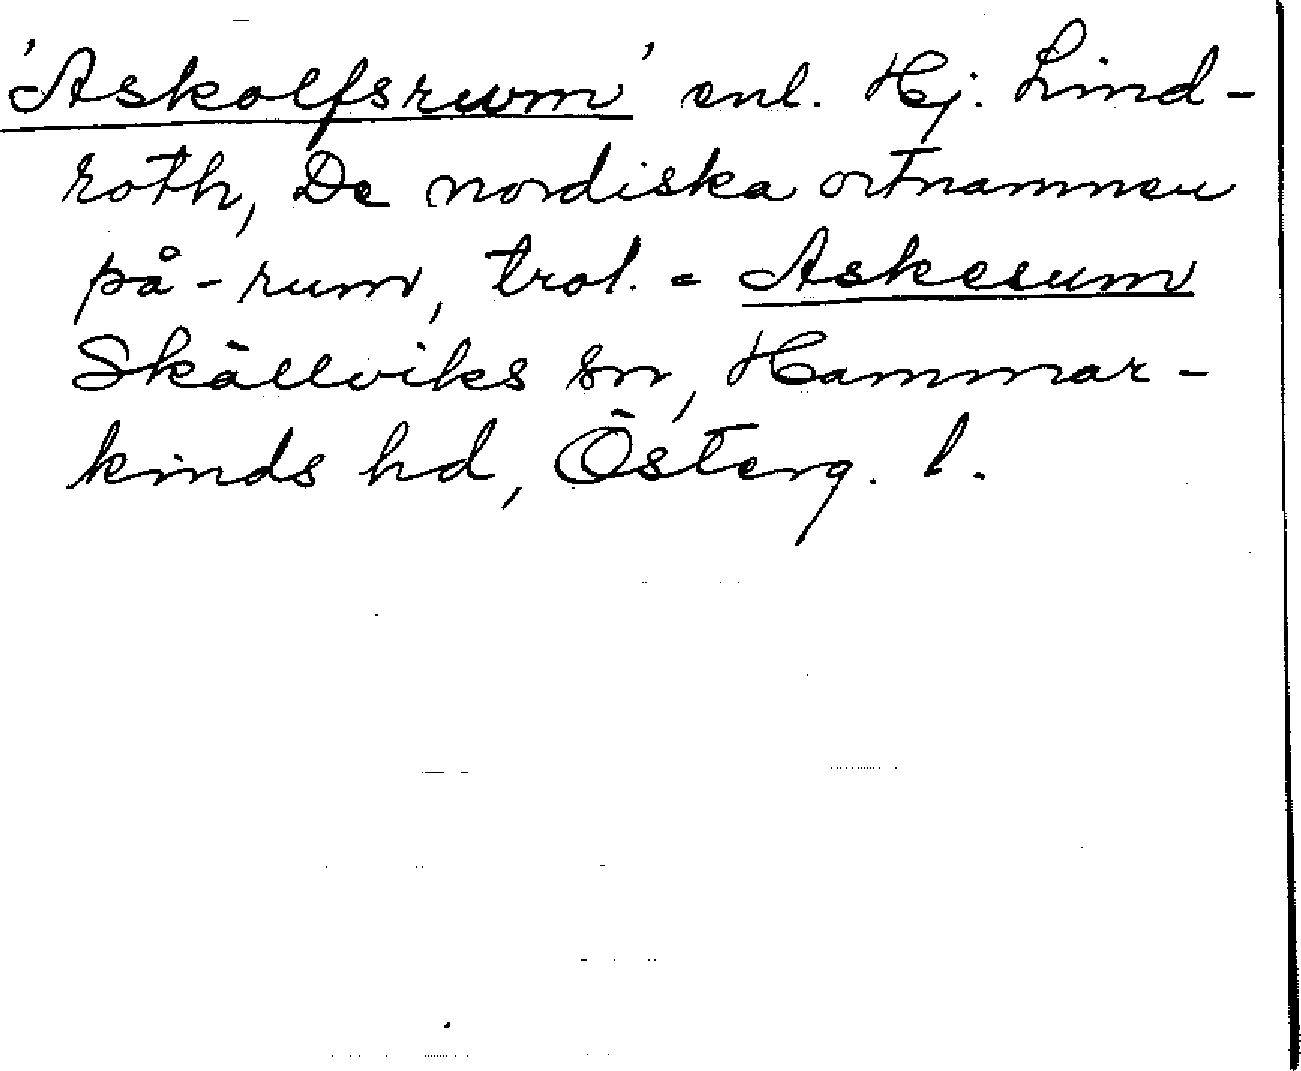 'Askolfsrum' enl. Hj. Lind-
roth, De nordiska ortnamnen
på -rum, trol. = Askesum
Skällviks sn, Hammar-
kinds hd, Österg. l.